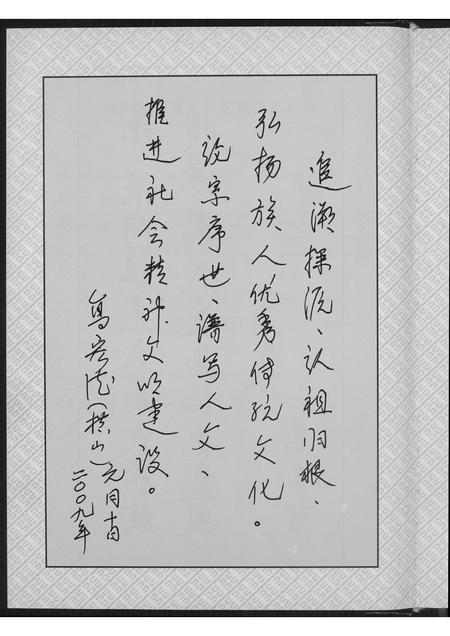 追溯探流、认祖归根、
弘扬族人优秀传统文化。
论宗序世、谱写人文、
推进社会精神文明建设。
(横山)
二〇〇九年元月十日